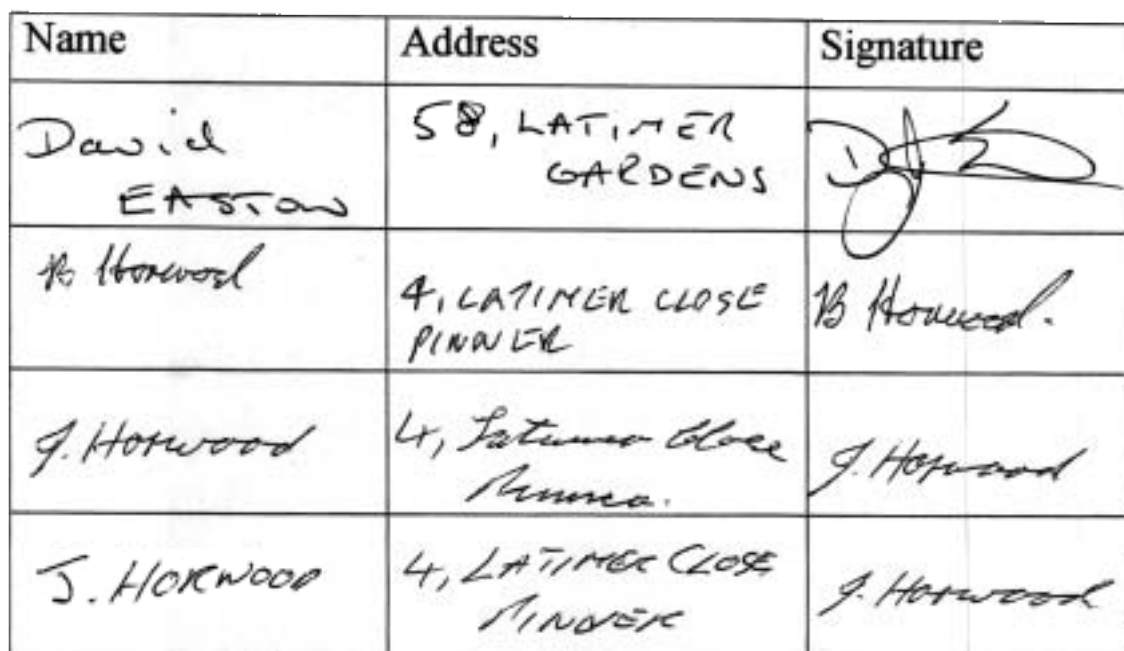 Name Address Signature
David
EASTON
58, LATIMER
GARDENS
B Horwood
4, LATIMER CLOSE
PINNER
B Horwood.
J. Horwood
4, Latimer Close
Pinner.
J. Horwood
J. HORWOOD
4, LATIMER CLOSE
PINNER
J. Horwood